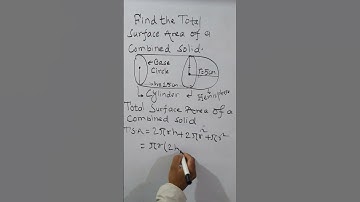 Find the Total
Surface Area of a
Combined solid.
Base
Circle
r=5cm
Cylinder
Hemisphere
Total Surface Area of a
Combined solid
TSA = 2πrh + 2πr² + πr²
= πr(2h